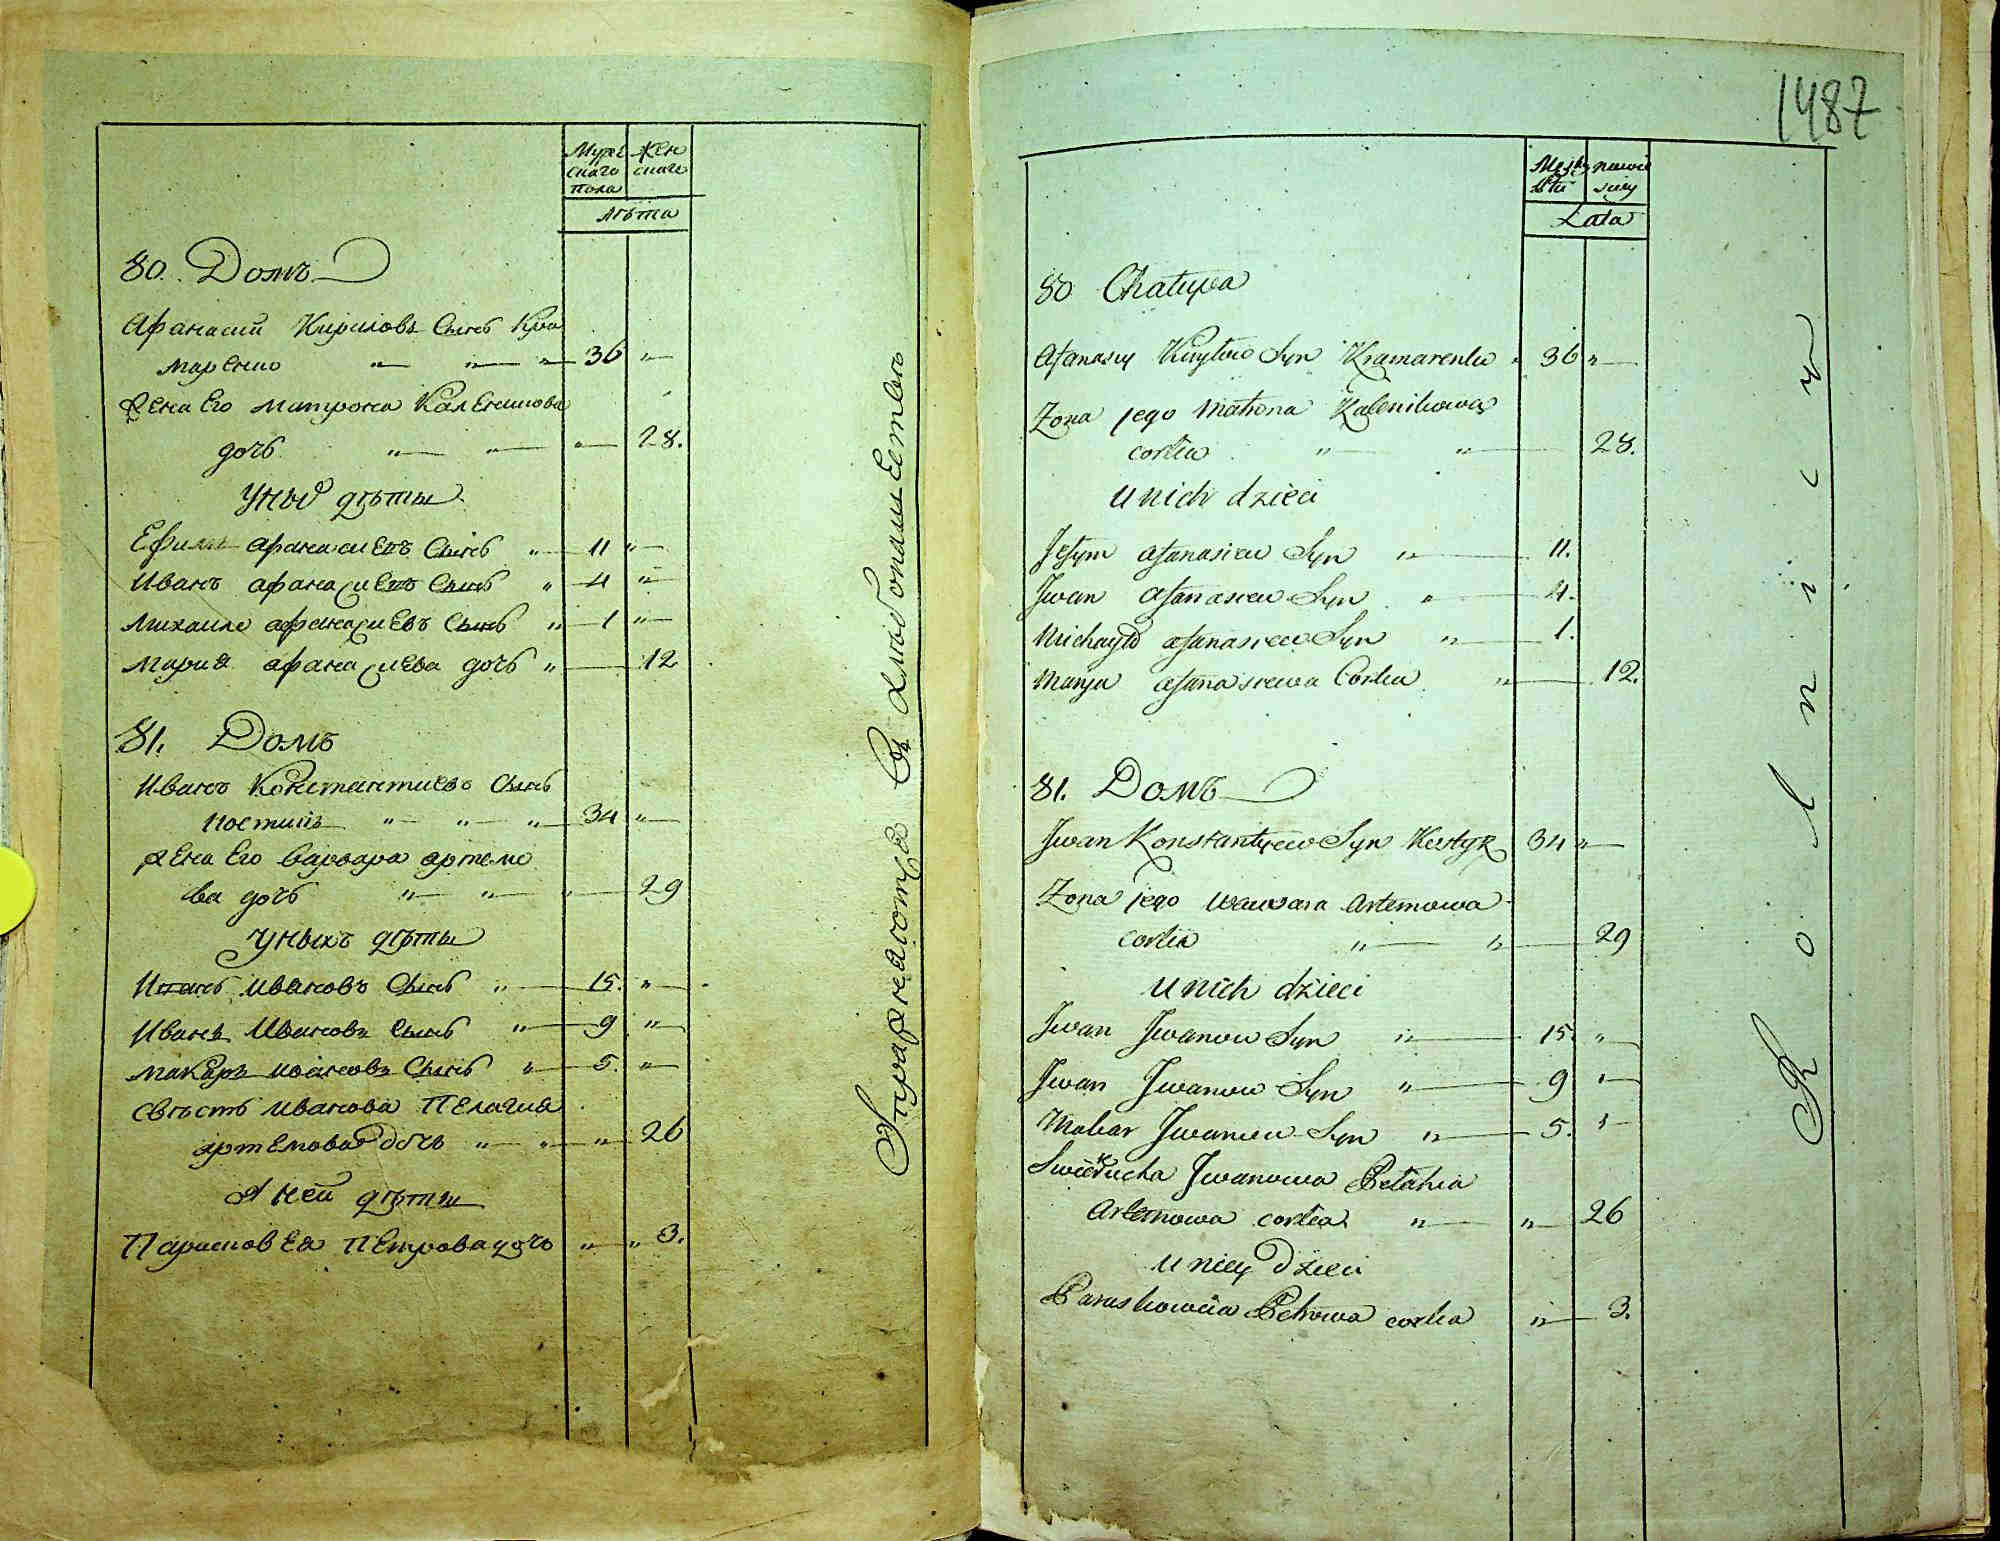 Мужескаго пола
Женскаго
лѣта
80. Домъ
Афанасий Кириловъ Сынъ Кра
маренко " " " 36 "
жена Его матрона Каленикова
дочь " " " 28.
У ныхъ дѣты
Ефимъ афанасиевъ Сынъ " 11 "
Иванъ афанасиевъ Сынъ " 4 "
Михаило афанасиевъ Сынъ " 1 "
Мария афанасиева дочь " 12
81. Домъ
Иванъ Константиевъ Сынъ
Костикъ " " " 34 "
жена Его варвара артемо
ва дочь " " " 29
У ныхъ дѣты
Иванъ ивановъ Сынъ " 15. "
Иванъ Ивановъ Сынъ " 9 "
Макаръ ивановъ Сынъ " 5. "
Свѣсть иванова Пелагия
артемова дочь " " " 26
У ней дѣты
Парасковея Петрова дочь " " 3.
Упражняются въ хлѣбопашестве
1487
Męsky płci
Lata
80 Chałupa
Afanasiy Kiryłow Syn Kramarenko " 36 "
Zona jego Matrona Kalenikowa
corka " " 28.
U nich dzieci
Jefym Afanasiew Syn " 11.
Jwan Afanasiew Syn " 4.
Michayło Afanasiew Syn " 1.
Marya Afanasiewa Corka " 12.
81. Домъ
Jwan Konstantyew Syn Kostyk 34 "
Zona jego Warwara Artemowa
corka " " 29
U nich dzieci
Jwan Jwanow Syn " 15. "
Jwan Jwanow Syn " 9 "
Makar Jwanow Syn " 5. "
Jwanowa Pelahia
Artemowa corka " " 26
U niey Dzieci
Paraskoweia Petrowa corka " 3.
Rolnicy